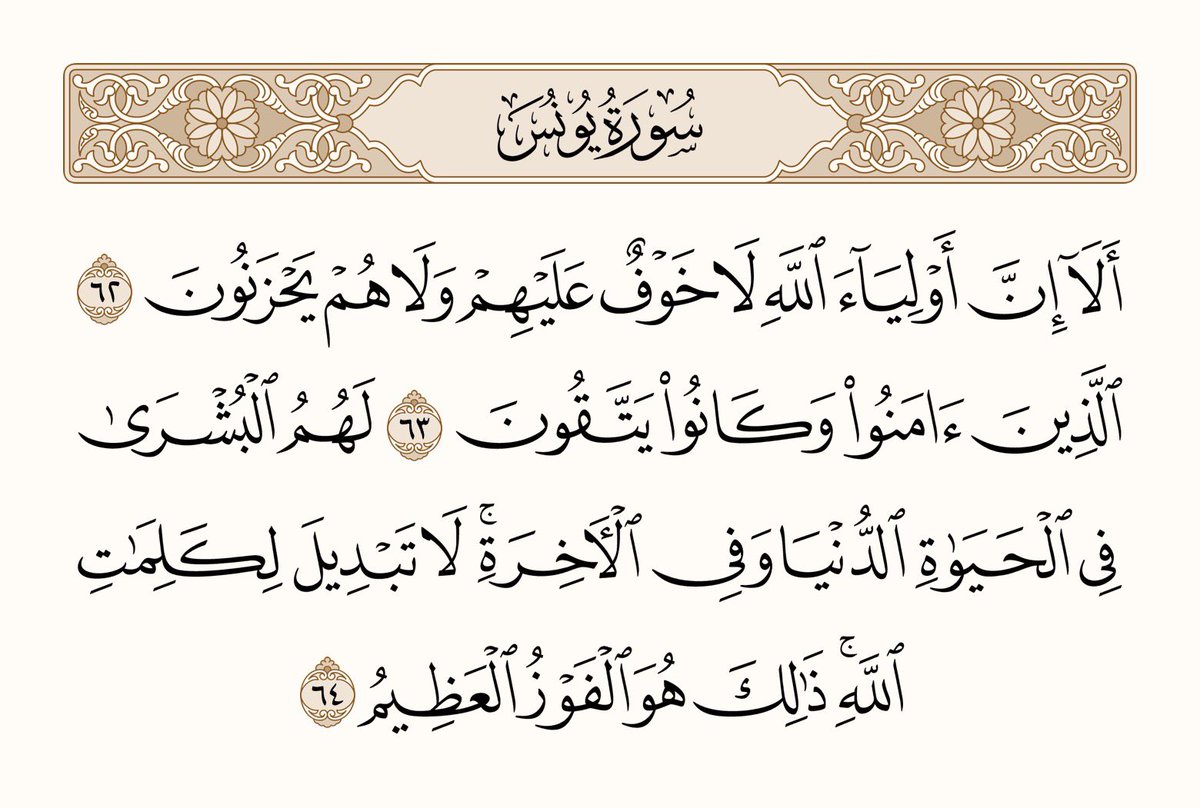 سُورَةُ يُونُسَ
أَلَآ إِنَّ أَوْلِيَآءَ ٱللَّهِ لَا خَوْفٌ عَلَيْهِمْ وَلَا هُمْ يَحْزَنُونَ ٦٢
ٱلَّذِينَ ءَامَنُوا۟ وَكَانُوا۟ يَتَّقُونَ ٦٣ لَهُمُ ٱلْبُشْرَىٰ
فِى ٱلْحَيَوٰةِ ٱلدُّنْيَا وَفِى ٱلْـَٔاخِرَةِ ۚ لَا تَبْدِيلَ لِكَلِمَـٰتِ
ٱللَّهِ ۚ ذَٰلِكَ هُوَ ٱلْفَوْزُ ٱلْعَظِيمُ ٦٤